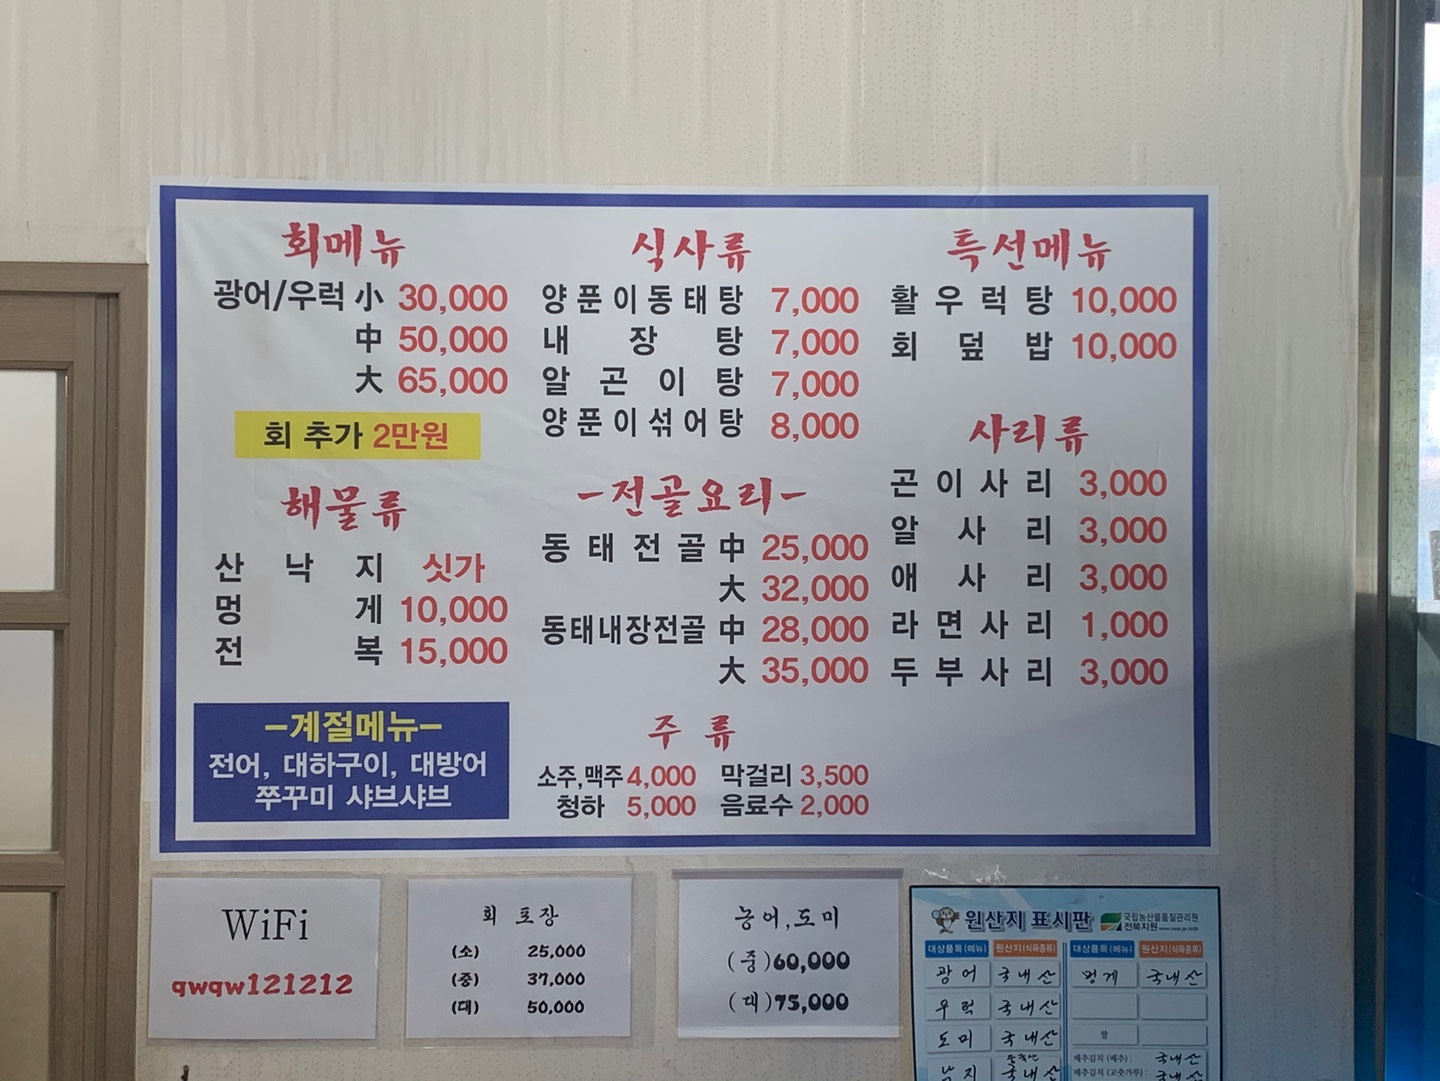 회메뉴
광어/우럭 小 30,000
中 50,000
大 65,000
회 추가 2만원
해물류
산낙지 싯가
멍게 10,000
전복 15,000
-계절메뉴-
전어, 대하구이, 대방어
쭈꾸미 샤브샤브
식사류
양푼이동태탕 7,000
내장탕 7,000
알곤이탕 7,000
양푼이섞어탕 8,000
-전골요리-
동태전골 中 25,000
大 32,000
동태내장전골 中 28,000
大 35,000
주류
소주,맥주 4,000 막걸리 3,500
청하 5,000 음료수 2,000
특선메뉴
활우럭탕 10,000
회덮밥 10,000
사리류
곤이사리 3,000
알사리 3,000
애사리 3,000
라면사리 1,000
두부사리 3,000
WiFi
qwqw121212
회 포장
(소) 25,000
(중) 37,000
(대) 50,000
농어,도미
(중)60,000
(대)75,000
원산지 표시판 국립농산물품질관리원
전북지원
대상품목(메뉴) 원산지(식육종류) 대상품목(메뉴) 원산지(식육종류)
광어 국내산 멍게 국내산
우럭 국내산
도미 국내산 쌀
배추김치(배추): 국내산
낙지 국내산 배추김치(고춧가루): 국내산